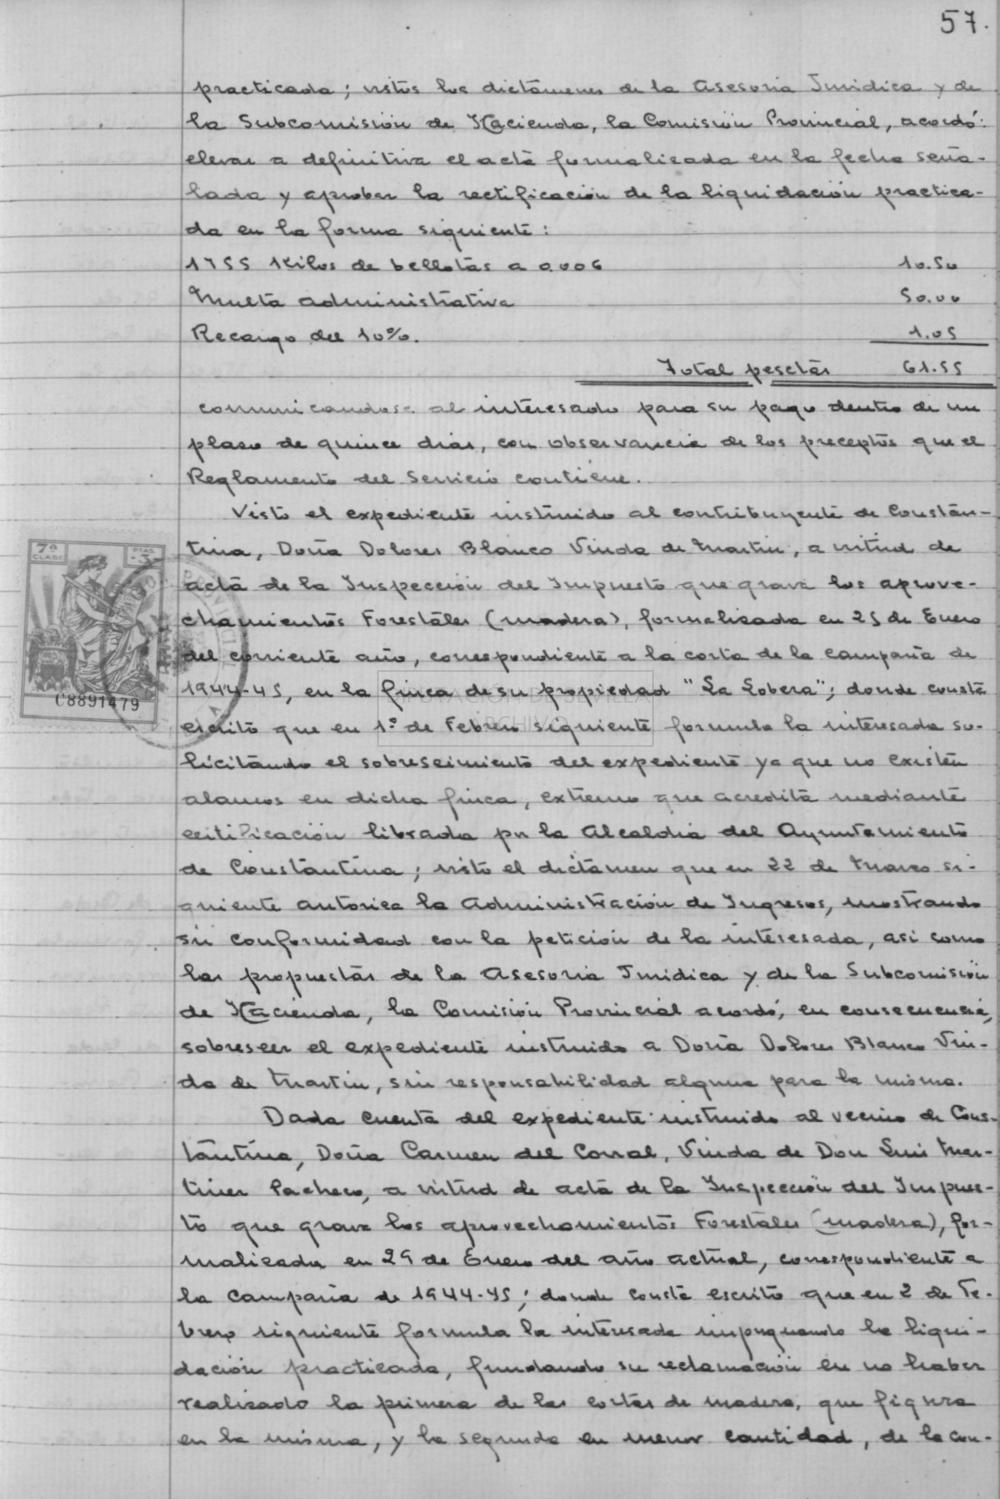 57.
practicada; vistos los dictámenes de la Asesoria Juridica y de
la Subcomisión de Hacienda, la Comisión Provincial, acordó:
elevar a definitiva el acta formalizada en la fecha seña-
lada y aprobar la rectificación de la liquidación practica-
da en la forma siguiente:
1755 Kilos de bellotas a 0.006 10.50
Multa administrativa 50.00
Recargo del 10%. 1.05
Total pesetas 61.55
comunicandose al interesado para su pago dentro de un
plazo de quince dias, con observancia de los preceptos que el
Reglamento del Servicio contiene.
Visto el expediente instruido al contribuyente de Constan-
tina, Doña Dolores Blanco Viuda de Martin, a virtud de
acta de la Inspección del Impuesto que grava los aprove-
chamientos Forestales (madera), formalizada en 25 de Enero
del corriente año, correspondiente a la corta de la campaña de
1944-45, en la finca de su propiedad "La Lobera"; donde consta
escrito que en 1º de Febrero siguiente formula la interesada so-
licitando el sobreseimiento del expediente ya que no existen
alamos en dicha finca, extremo que acredita mediante
certificación librada por la Alcaldia del Ayuntamiento
de Constantina; visto el dictamen que en 22 de Marzo si-
guiente autoriza la Administración de Ingresos, mostrando
su conformidad con la petición de la interesada, asi como
las propuestas de la Asesoria Juridica y de la Subcomisión
de Hacienda, la Comisión Provincial acordó, en consecuencia,
sobreseer el expediente instruido a Doña Dolores Blanco Viu-
da de Martin, sin responsabilidad alguna para la misma.
Dada cuenta del expediente instruido al vecino de Cons-
tantina, Doña Carmen del Corral, Viuda de Don Luis Mar-
tinez Pacheco, a virtud de acta de la Inspección del Impues-
to que grava los aprovechamientos Forestales (madera), for-
malizada en 29 de Enero del año actual, correspondiente a
la campaña de 1944-45; donde consta escrito que en 2 de Fe-
brero siguiente formula la interesada impugnando la liqui-
dación practicada, fundando su reclamación en no haber
realizado la primera de las cortas de madera, que figura
en la misma, y la segunda en menor cantidad, de la con-
7ª CLASE
PTAS
C8891479
DIPUTACION DE SEVILLA
ARCHIVO